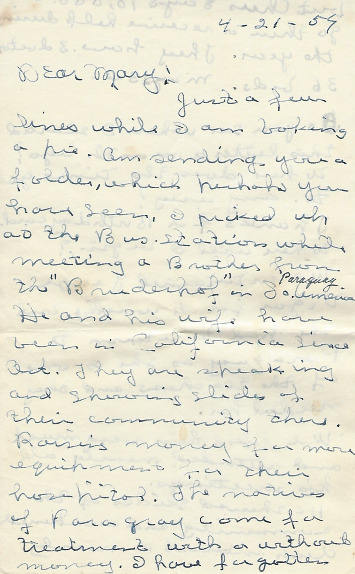 4-21-54
Dear Mary!
Just a few
lines while I am baking
a pie. Am sending you a
folder, which perhaps you
have seen, I picked up
at the Bus. Station while
meeting a Brother from
the "Bruderhof" in So. America
Paraguay
He and his wife have
been in California since
Oct. They are speaking
and showing slides of
their community there.
Raising money for more
equipment for their
hospital. The natives
of Paragray come for
treatment with or without
money. I have forgotten